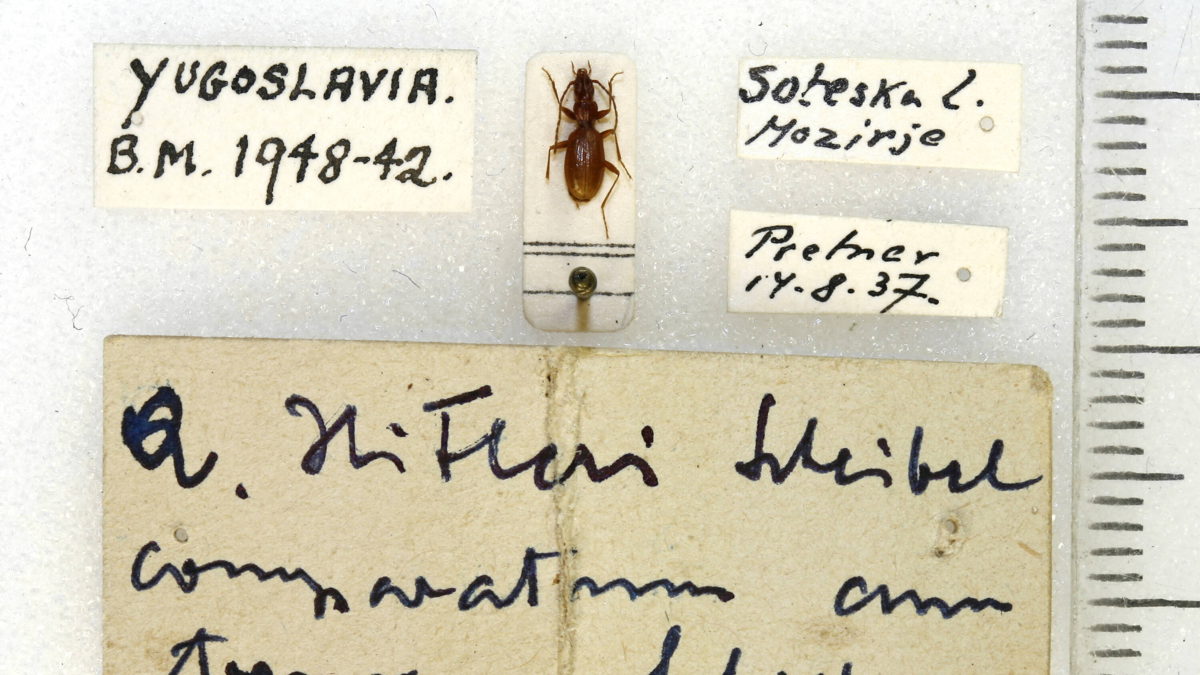 YUGOSLAVIA.
B.M. 1948-42.
Soteska l.
Mozirje
Pretner
14.8.37.
A. Hitleri Scheibel
comparatum cum